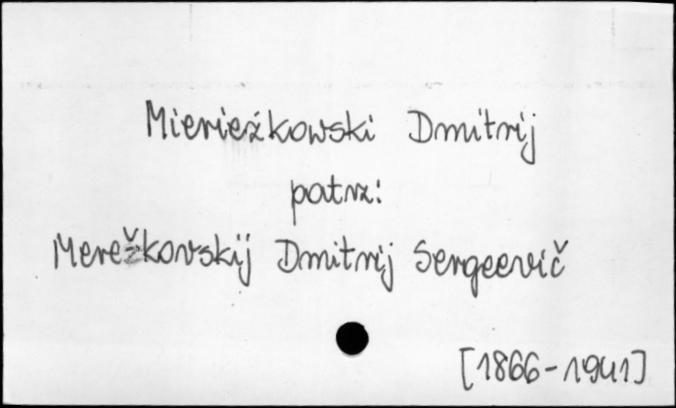 Mierieżkowski Dmitrij
patrz:
Merežkovskij Dmitrij Sergeevič
[1866-1941]